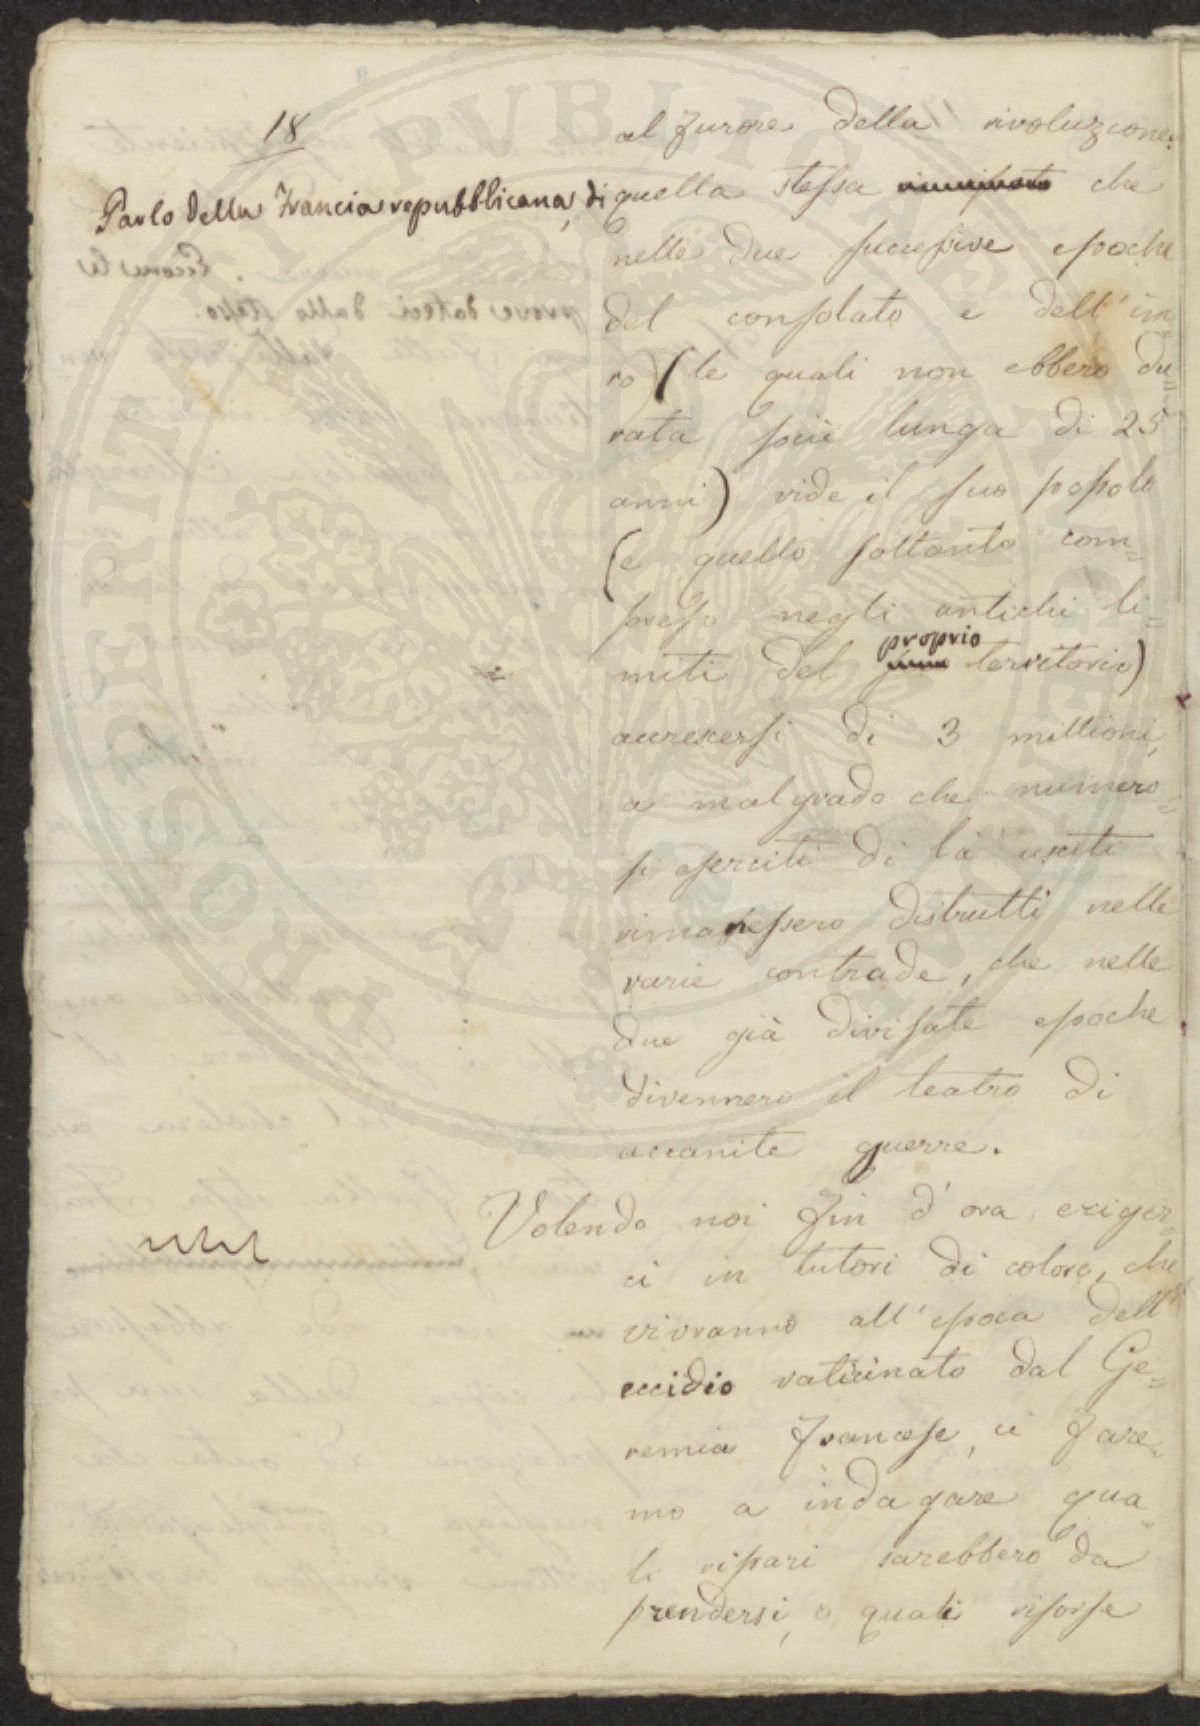 18
Parlo della Francia repubblicana, di
al furore della rivoluzione:
quella stessa che
nelle due successive epoche
del consolato e dell'im-
ro (le quali non ebbero du=
rata più lunga di 25
anni) vide il suo popolo
(e quello soltanto com=
preso negli antichi li=
miti del proprio territorio)
accrescersi di 3 millioni,
a malgrado che numero=
si eserciti di là usciti
rimanessero distrutti nelle
varie contrade, che nelle
due già divisate epoche
divennero il teatro di
accanite guerre.
Volendo noi fin d'ora eriger=
ci in tutori di coloro, che
vivranno all'epoca dell'
eccidio vaticinato dal Ge=
remia francese, ci fare=
mo a indagare qua=
li ripari sarebbero da
prendersi, o quali risorse
PROSPERITATI PVBLICAE